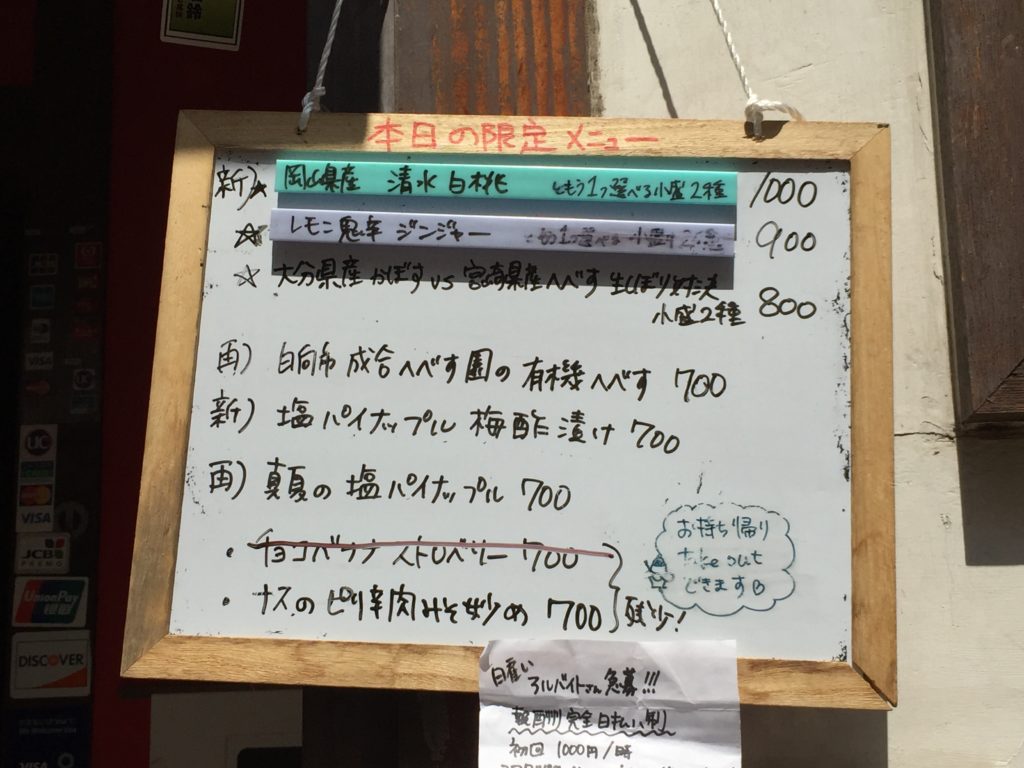 本日の限定メニュー
新)☆ 岡山県産 清水白桃 ともう1つ選べる小盛2種 1000
☆ レモン鬼辛 ジンジャー 900
☆ 大分県産かぼす vs 宮崎県産へべす 生しぼり
小盛2種 800
再) 日向市 成合へべす園の有機へべす 700
新) 塩パイナップル 梅酢漬け 700
再) 真夏の塩パイナップル 700
・チョコバナナ ストロベリー 700
・ナスのピリ辛肉みそ炒め 700 残少!
お持ち帰り
take out
できます
日雇い
アルバイトさん急募!!!
報酬完全日払い制
初回 1000円/時
UC
VISA
VISA
JCB
PREMO
UnionPay
银联
DISCOVER